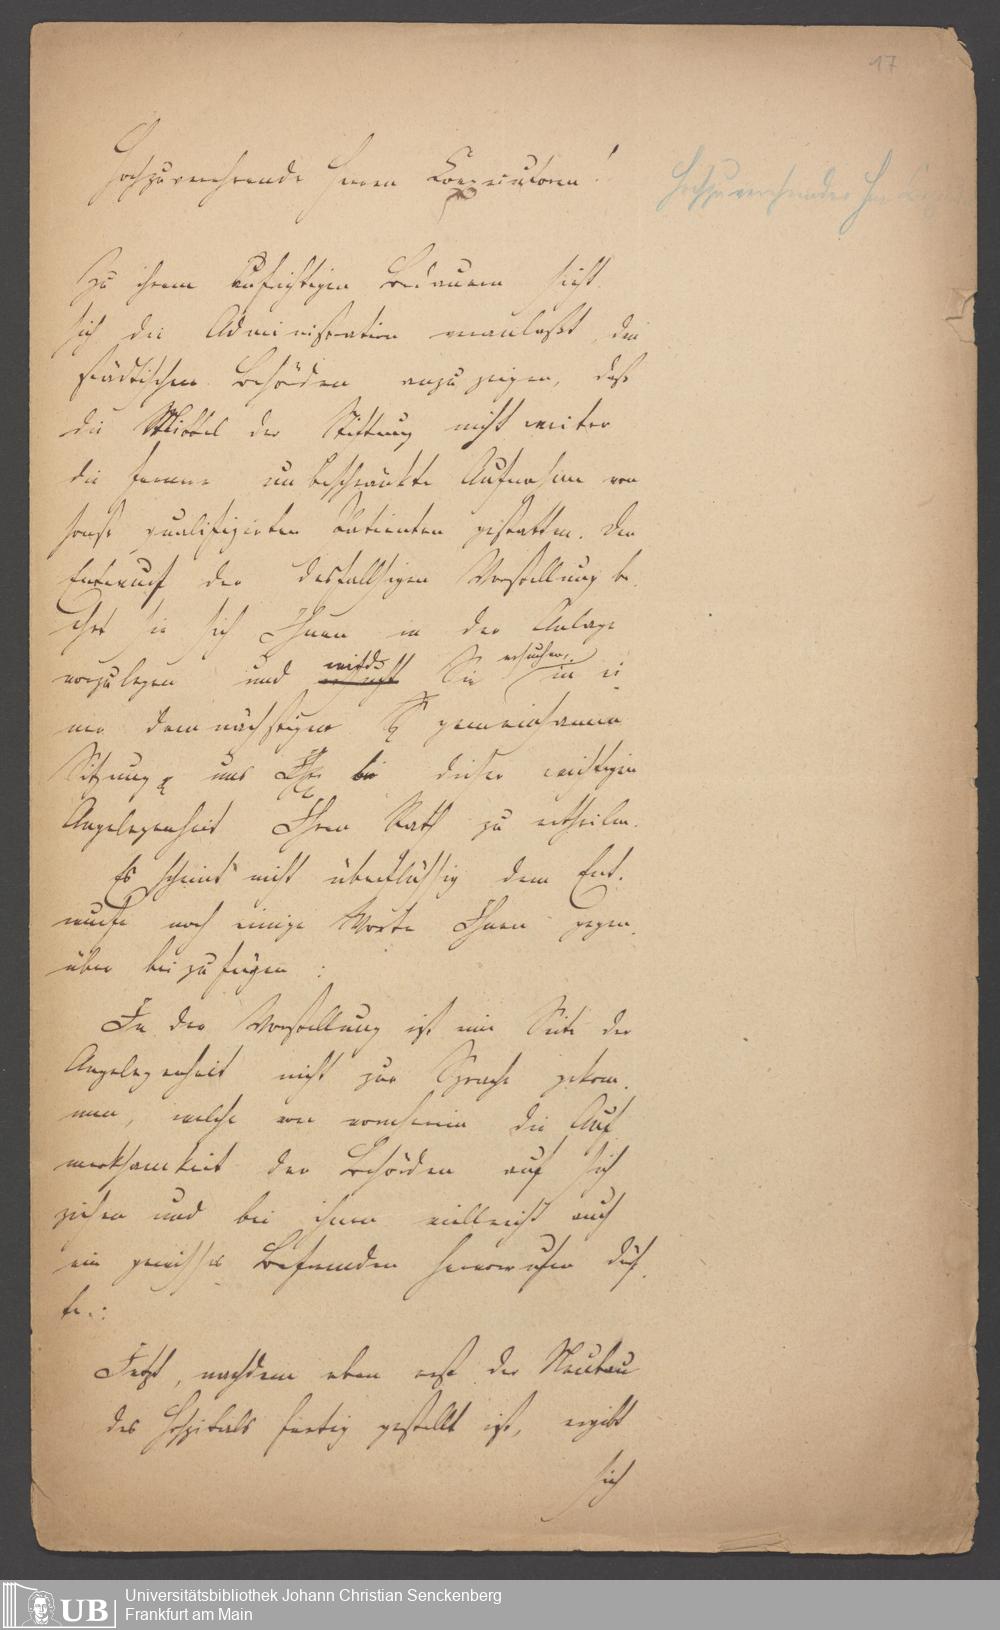 17
Hochzuverehrende Herren Consultoren!
Hochzuverehrender Herr
Zu ihrem aufrichtigen Bedauern sieht
sich die Administration veranlaßt, den
städtischen Behörden anzuzeigen, daß
die Mittel der Stiftung nicht weiter
die fernere unbeschränkte Aufnahme von
sonst qualifizirten Patienten gestatten. Den
Entwurf der desfallsigen Vorstellung be-
ehrt sie sich Ihnen in der Anlage
vorzulegen und Sie ersuchen, in ei-
ner demnächstigen gemeinsamen
Sitzung uns bei dieser wichtigen
Angelegenheit Ihren Rath zu ertheilen.
Es scheint nicht überflüssig dem Ent-
wurfe noch einige Worte Ihnen gegen-
über beizufügen:
In der Vorstellung ist eine Seite der
Angelegenheit nicht zur Sprache gekom-
men, welche von vornherein die Auf
merksamkeit der Behörden auf sich
ziehen und bei ihnen vielleicht auch
ein gewisses Befremden hervorrufen dürf-
te.:
Jetzt, nachdem eben erst der Neubau
des Hospitals fertig gestellt ist, ergibt
sich
UB
Universitätsbibliothek Johann Christian Senckenberg
Frankfurt am Main